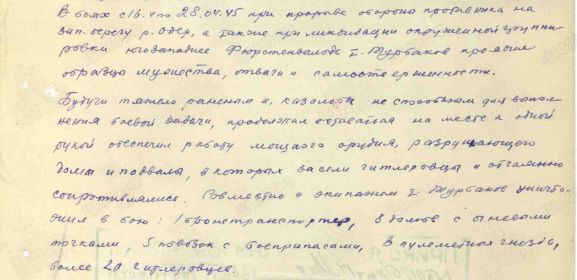 В боях с 16.4 по 28.04.45 при прорыве обороны противника на
зап. берегу р. Одер, а также при ликвидации окруженной группи-
ровки югозападнее Фюрстенвальде т. Турбаков проявил
образцы мужества, отваги и самоотверженности.
Будучи тяжело раненом и, казалось, не способным для выпол-
нения боевой задачи, продолжал оставаться на месте и одной
рукой обеспечил работу мощного орудия, разрушающего
дома и подвалы, в которых засели гитлеровцы и отчаянно
сопротивлялись. Совместно с экипажем т. Турбаков уничто-
жил в бою: 1 бронетранспортер, 8 домов с огневыми
точками, 5 повозок с боеприпасами, 3 пулеметных гнезда,
более 20 гитлеровцев.